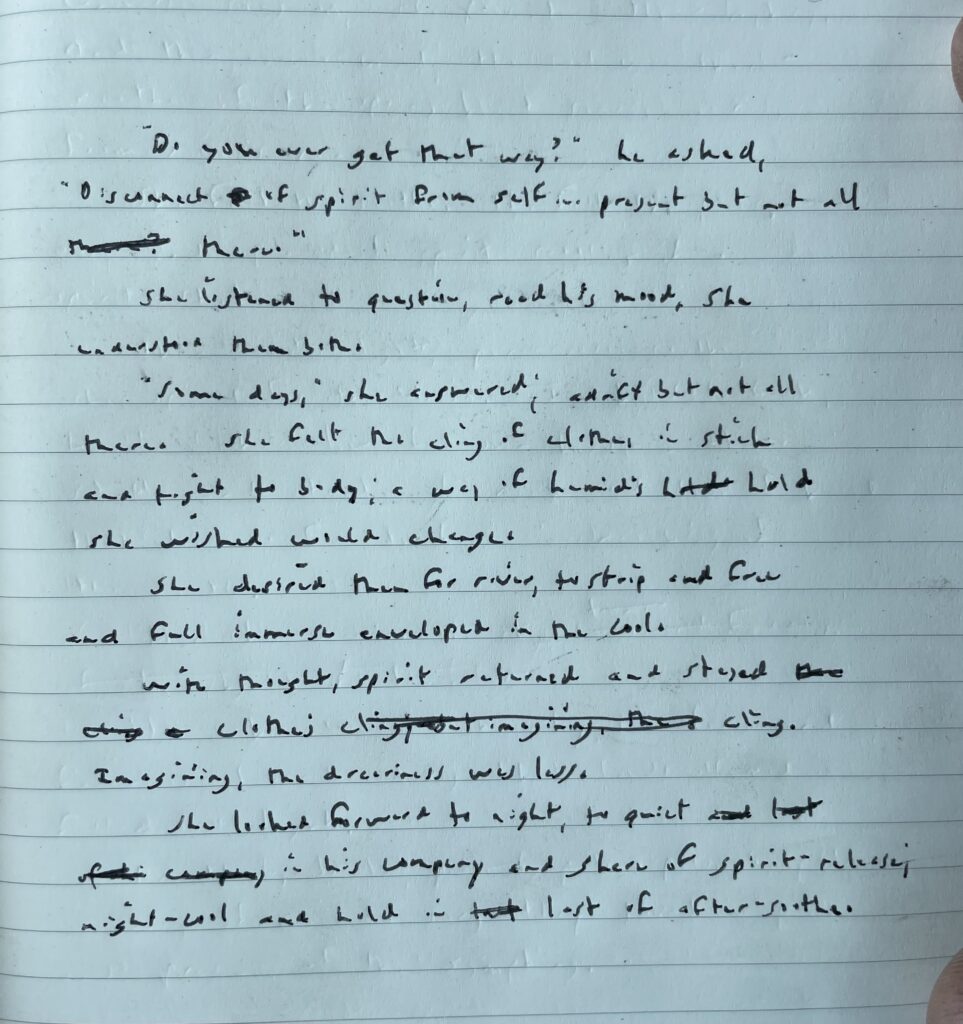 "Do you ever get that way?" he asked,
"Disconnect of spirit from self... present but not all
there."
She listened to question, read his mood, she
understood them both.
"Some days," she answered; adrift but not all
there. She felt the cling of clothes in stick
and tight to body; a way of humid's hold
she wished would change.
She desired them for river, to strip and free
and full immerse enveloped in the cool.
With thought, spirit returned and stayed
clothes cling.
Imagining, the dreariness was less.
She looked forward to night, to quiet
in his company and share of spirit-release;
night-cool and hold in last of after-soothe.